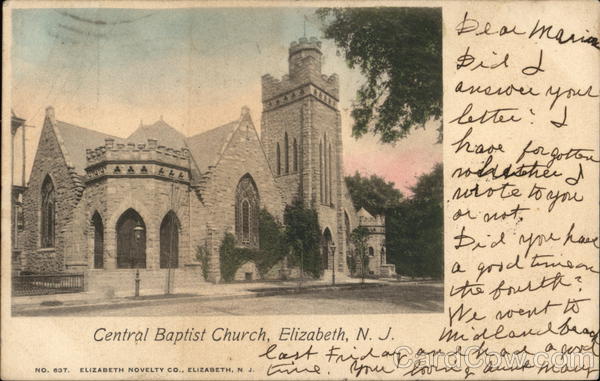 Dear Maria
Did I
answer your
letter? I
have forgotten
whether I
wrote to you
or not.
Did you have
a good time on
the fourth?
We went to
Midland beach
last Friday and had a
time. Your loving aunt Mary
Central Baptist Church, Elizabeth, N. J.
NO. 637. ELIZABETH NOVELTY CO., ELIZABETH, N. J.
CardCow.com